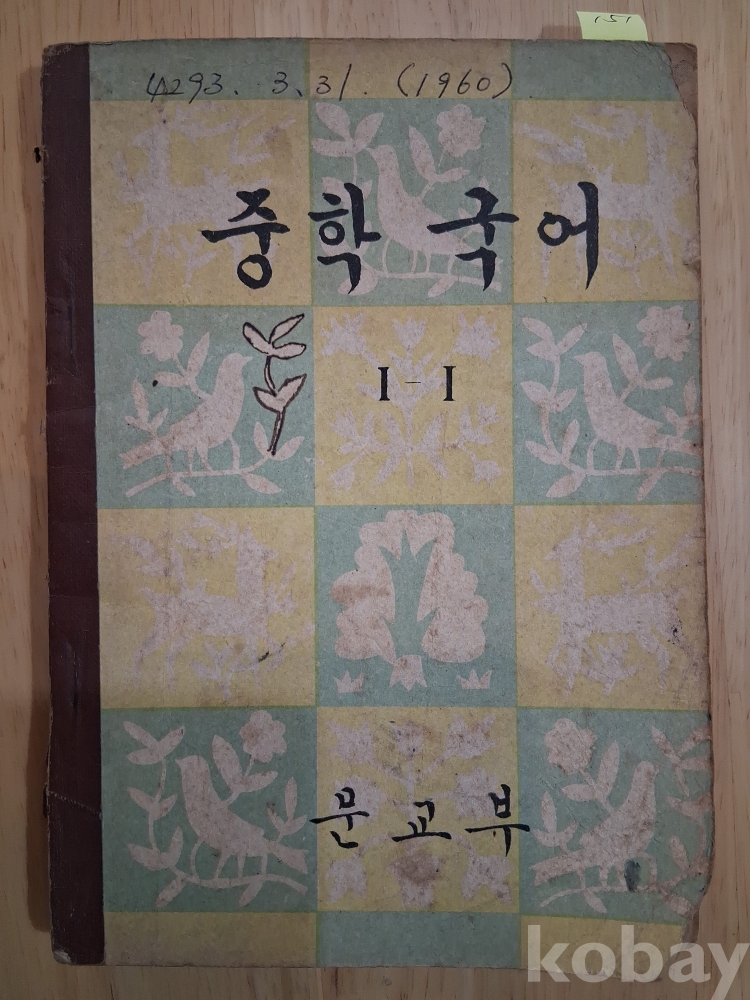 151
4293. 3. 31. (1960)
중학 국어
I-I
문교부
kobay